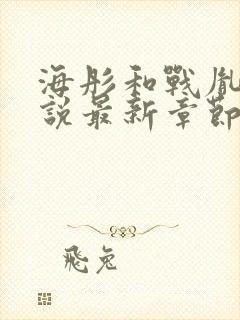 海彤和戰胤
說最新章節
飛兔